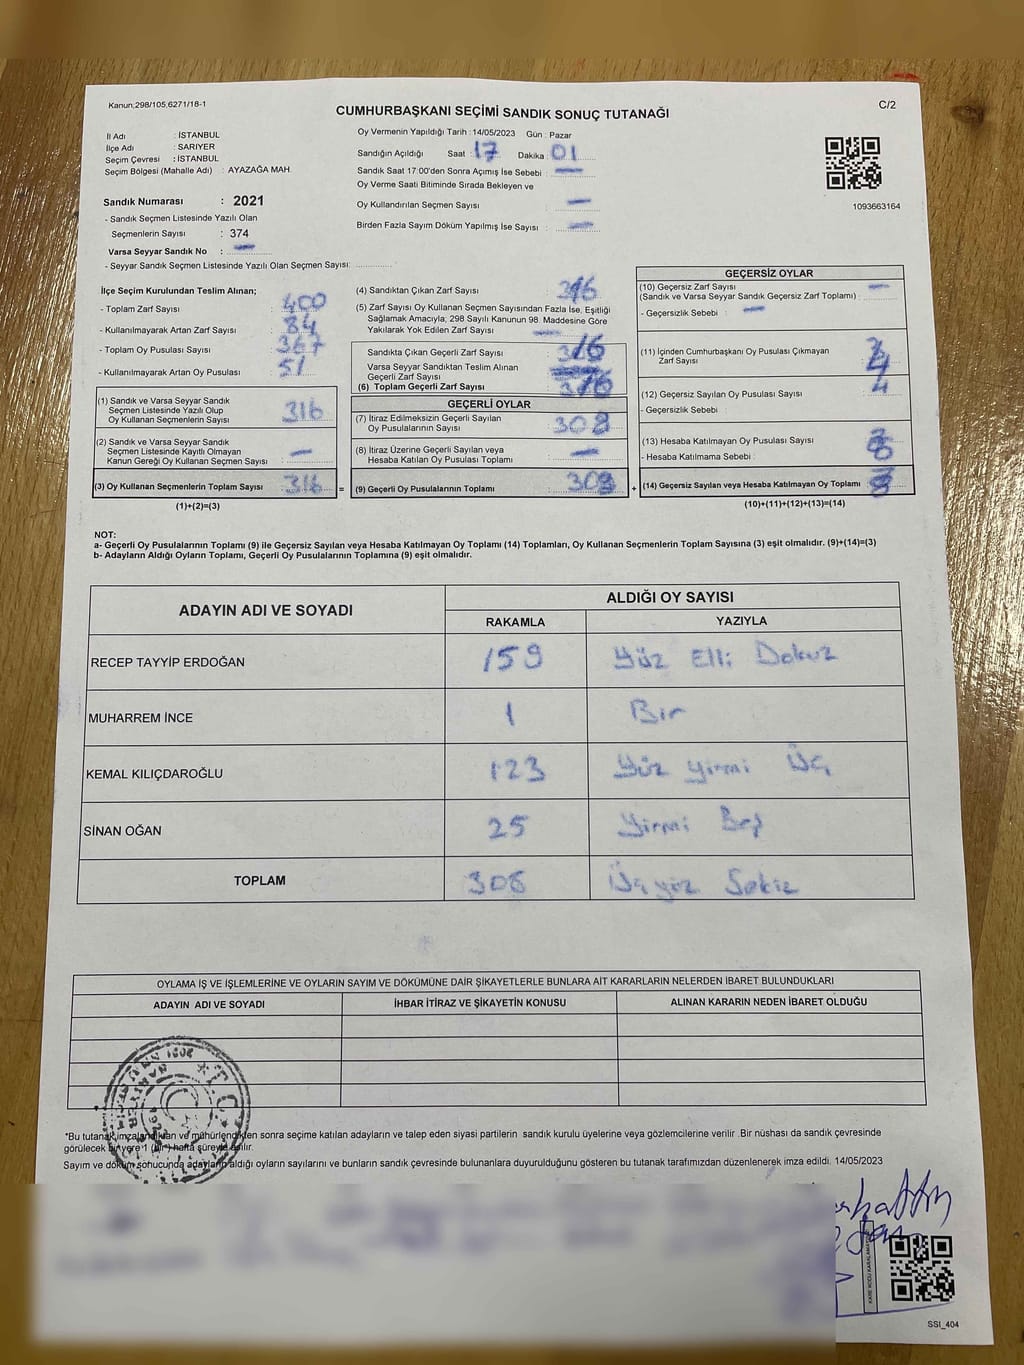 Kanun;298/105,6271/18-1
C/2
CUMHURBAŞKANI SEÇİMİ SANDIK SONUÇ TUTANAĞI
İl Adı : İSTANBUL
İlçe Adı : SARIYER
Seçim Çevresi : İSTANBUL
Seçim Bölgesi (Mahalle Adı) : AYAZAĞA MAH.
Sandık Numarası : 2021
- Sandık Seçmen Listesinde Yazılı Olan
Seçmenlerin Sayısı : 374
Varsa Seyyar Sandık No : —
- Seyyar Sandık Seçmen Listesinde Yazılı Olan Seçmen Sayısı: ..............
Oy Vermenin Yapıldığı Tarih : 14/05/2023 Gün : Pazar
Sandığın Açıldığı Saat : 17 Dakika : 01
Sandık Saat 17:00'den Sonra Açımış İse Sebebi : —
Oy Verme Saati Bitiminde Sırada Bekleyen ve
Oy Kullandırılan Seçmen Sayısı : —
Birden Fazla Sayım Döküm Yapılmış İse Sayısı : —
1093663164
İlçe Seçim Kurulundan Teslim Alınan;
- Toplam Zarf Sayısı : 400
- Kullanılmayarak Artan Zarf Sayısı : 84
- Toplam Oy Pusulası Sayısı : 367
- Kullanılmayarak Artan Oy Pusulası : 51
(1) Sandık ve Varsa Seyyar Sandık
Seçmen Listesinde Yazılı Olup
Oy Kullanan Seçmenlerin Sayısı : 316
(2) Sandık ve Varsa Seyyar Sandık
Seçmen Listesinde Kayıtlı Olmayan
Kanun Gereği Oy Kullanan Seçmen Sayısı : —
(3) Oy Kullanan Seçmenlerin Toplam Sayısı : 316
(1)+(2)=(3)
(4) Sandıktan Çıkan Zarf Sayısı : 316
(5) Zarf Sayısı Oy Kullanan Seçmen Sayısından Fazla İse, Eşitliği
Sağlamak Amacıyla; 298 Sayılı Kanunun 98. Maddesine Göre
Yakılarak Yok Edilen Zarf Sayısı : —
Sandıkta Çıkan Geçerli Zarf Sayısı : 316
Varsa Seyyar Sandıktan Teslim Alınan
Geçerli Zarf Sayısı :
(6) Toplam Geçerli Zarf Sayısı : 316
GEÇERLİ OYLAR
(7) İtiraz Edilmeksizin Geçerli Sayılan
Oy Pusulalarının Sayısı : 308
(8) İtiraz Üzerine Geçerli Sayılan veya
Hesaba Katılan Oy Pusulası Toplamı : —
= (9) Geçerli Oy Pusulalarının Toplamı : 308
GEÇERSİZ OYLAR
(10) Geçersiz Zarf Sayısı : —
(Sandık ve Varsa Seyyar Sandık Geçersiz Zarf Toplamı)
- Geçersizlik Sebebi : —
(11) İçinden Cumhurbaşkanı Oy Pusulası Çıkmayan
Zarf Sayısı : 4
(12) Geçersiz Sayılan Oy Pusulası Sayısı : 4
- Geçersizlik Sebebi :
(13) Hesaba Katılmayan Oy Pusulası Sayısı :
- Hesaba Katılmama Sebebi :
+ (14) Geçersiz Sayılan veya Hesaba Katılmayan Oy Toplamı : 8
(10)+(11)+(12)+(13)=(14)
NOT:
a- Geçerli Oy Pusulalarının Toplamı (9) ile Geçersiz Sayılan veya Hesaba Katılmayan Oy Toplamı (14) Toplamları, Oy Kullanan Seçmenlerin Toplam Sayısına (3) eşit olmalıdır. (9)+(14)=(3)
b- Adayların Aldığı Oyların Toplamı, Geçerli Oy Pusulalarının Toplamına (9) eşit olmalıdır.
ADAYIN ADI VE SOYADI
ALDIĞI OY SAYISI
RAKAMLA YAZIYLA
RECEP TAYYİP ERDOĞAN 159 Yüz Elli Dokuz
MUHARREM İNCE 1 Bir
KEMAL KILIÇDAROĞLU 123 Yüz Yirmi Üç
SİNAN OĞAN 25 Yirmi Beş
TOPLAM 308 Üçyüz Sekiz
OYLAMA İŞ VE İŞLEMLERİNE VE OYLARIN SAYIM VE DÖKÜMÜNE DAİR ŞİKAYETLERLE BUNLARA AİT KARARLARIN NELERDEN İBARET BULUNDUKLARI
ADAYIN ADI VE SOYADI İHBAR İTİRAZ VE ŞİKAYETİN KONUSU ALINAN KARARIN NEDEN İBARET OLDUĞU
*Bu tutanak imzalandıktan ve mühürlendikten sonra seçime katılan adayların ve talep eden siyasi partilerin sandık kurulu üyelerine veya gözlemcilerine verilir .Bir nüshası da sandık çevresinde
görülecek bir yere 1 (bir) hafta süreyle asılır.
Sayım ve döküm sonucunda adayların aldığı oyların sayılarını ve bunların sandık çevresinde bulunanlara duyurulduğunu gösteren bu tutanak tarafımızdan düzenlenerek imza edildi. 14/05/2023
SSI_404